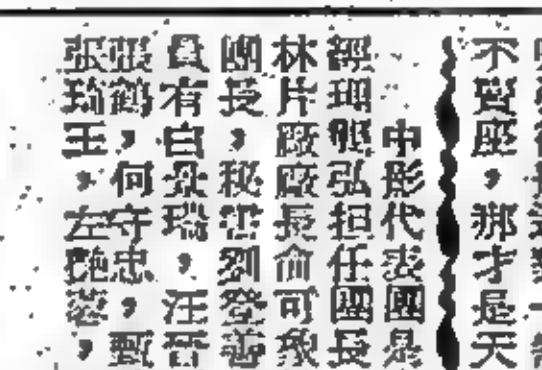 不賣座，那才是天
中影代表團是
經理龔弘担任團長
林片廠廠長俞可敬
團長，秘書劉登善
員有白景瑞，汪晉
張鶴，何守忠，甄
張瑞玉，左艷蓉，